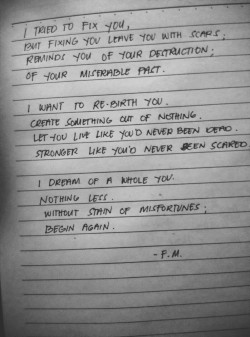 I TRIED TO FIX YOU,
BUT FIXING YOU LEAVE YOU WITH SCARS;
REMINDS YOU OF YOUR DESTRUCTION;
OF YOUR MISERABLE PAST.
I WANT TO RE-BIRTH YOU.
CREATE SOMETHING OUT OF NOTHING.
LET YOU LIVE LIKE YOU'D NEVER BEEN DEAD.
STRONGER LIKE YOU'D NEVER BEEN SCARED.
I DREAM OF A WHOLE YOU.
NOTHING LESS.
WITHOUT STAIN OF MISFORTUNES;
BEGIN AGAIN.
- F.M.